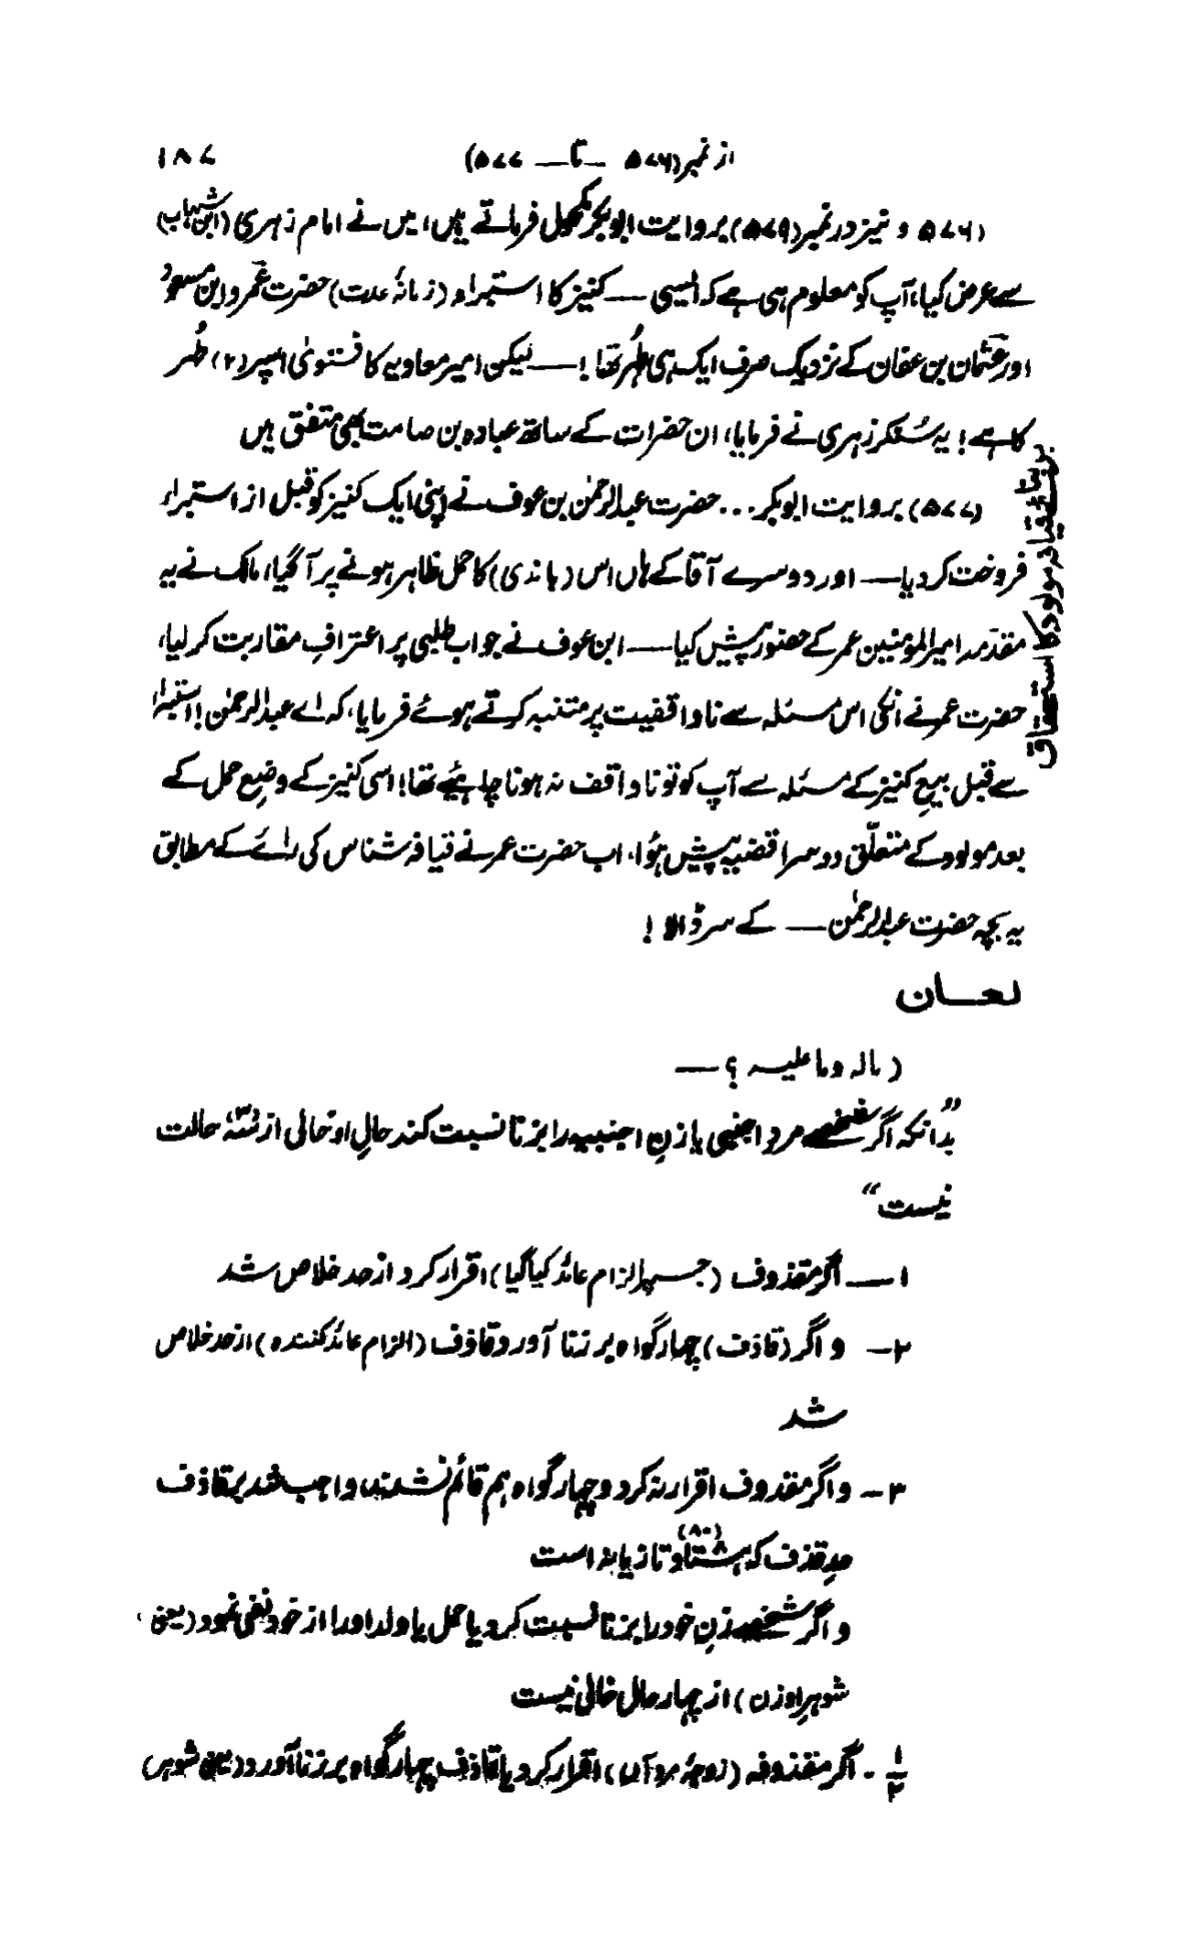 از نمبر (۵۷۶ — تا — ۵۷۷) ۱۸۷
(۵۷۶ و نیز در نمبر (۵۷۹) بروایت ابوبکر مکحول فرماتے ہیں، میں نے امام زہری (ابن شہاب)
سے عرض کیا، آپ کو معلوم ہی ہے کہ ایسی — کنیز کا استبراء (زمانۂ عدت) حضرت عمر و ابن مسعود
اور عثمان بن عفان کے نزدیک صرف ایک ہی طُہر تھا! — لیکن امیر معاویہ کا فتویٰ اسپر (۲) طُہر
کا ہے! یہ سُنکر زہری نے فرمایا، ان حضرات کے ساتھ عبادہ بن صامت بھی متفق ہیں
(۵۷۷) بروایت ابوبکر... حضرت عبدالرحمٰن بن عوف نے اپنی ایک کنیز کو قبل از استبراء
فروخت کر دیا — اور دوسرے آقا کے ہاں اس (باندی) کا حمل ظاہر ہونے پر آ گیا، مالک نے یہ
مقدمہ امیرالمومنین عمر کے حضور پیش کیا — ابن عوف نے جواب طلبی پر اعترافِ مقاربت کر لیا،
حضرت عمر نے انکی اس مسئلہ سے ناواقفیت پر متنبہ کرتے ہوئے فرمایا، کہ اے عبدالرحمٰن! استبراء
سے قبل بیعِ کنیز کے مسئلہ سے آپ کو تو ناواقف نہ ہونا چاہیئے تھا! اسی کنیز کے وضعِ حمل کے
بعد مولود کے متعلّق دوسرا قضیہ پیش ہُوا، اب حضرت عمر نے قیافہ شناس کی رائے کے مطابق
یہ بچہ حضرت عبدالرحمٰن — کے سر ڈالا!
بر بنائے قیافہ مولود کا استحقاق
لعان
(مالہ وما علیہ ؟ —
”بدانکہ اگر شخصے مردِ اجنبی یا زنِ اجنبیہ را بزنا نسبت کند حالِ او خالی از سہ حالت
نیست“
۱— اگر مقذوف (جسپر الزام عائد کیا گیا) اقرار کرد از حد خلاص شد
۲— و اگر (قاذف) چہار گواہ بر زنا آورد قاذف (الزام عائد کنندہ) از حد خلاص
شد
۳— و اگر مقذوف اقرار نہ کرد و چہار گواہ ہم قائم نشدند، واجب شد بر قاذف
حدِ قذف کہ ہشتاد (۸۰) تازیانہ است
و اگر شخصے زنِ خود را بزنا نسبت کرد یا حمل یا ولد او را از خود نفی نمود (یعنی
شوہرِ او زن) از چہار حال خالی نیست
۱/۲. اگر مقذوفہ (زوجۂ مرد آں) اقرار کرد یا قاذف چہار گواہ بر زنا آورد (یعنی شوہر)